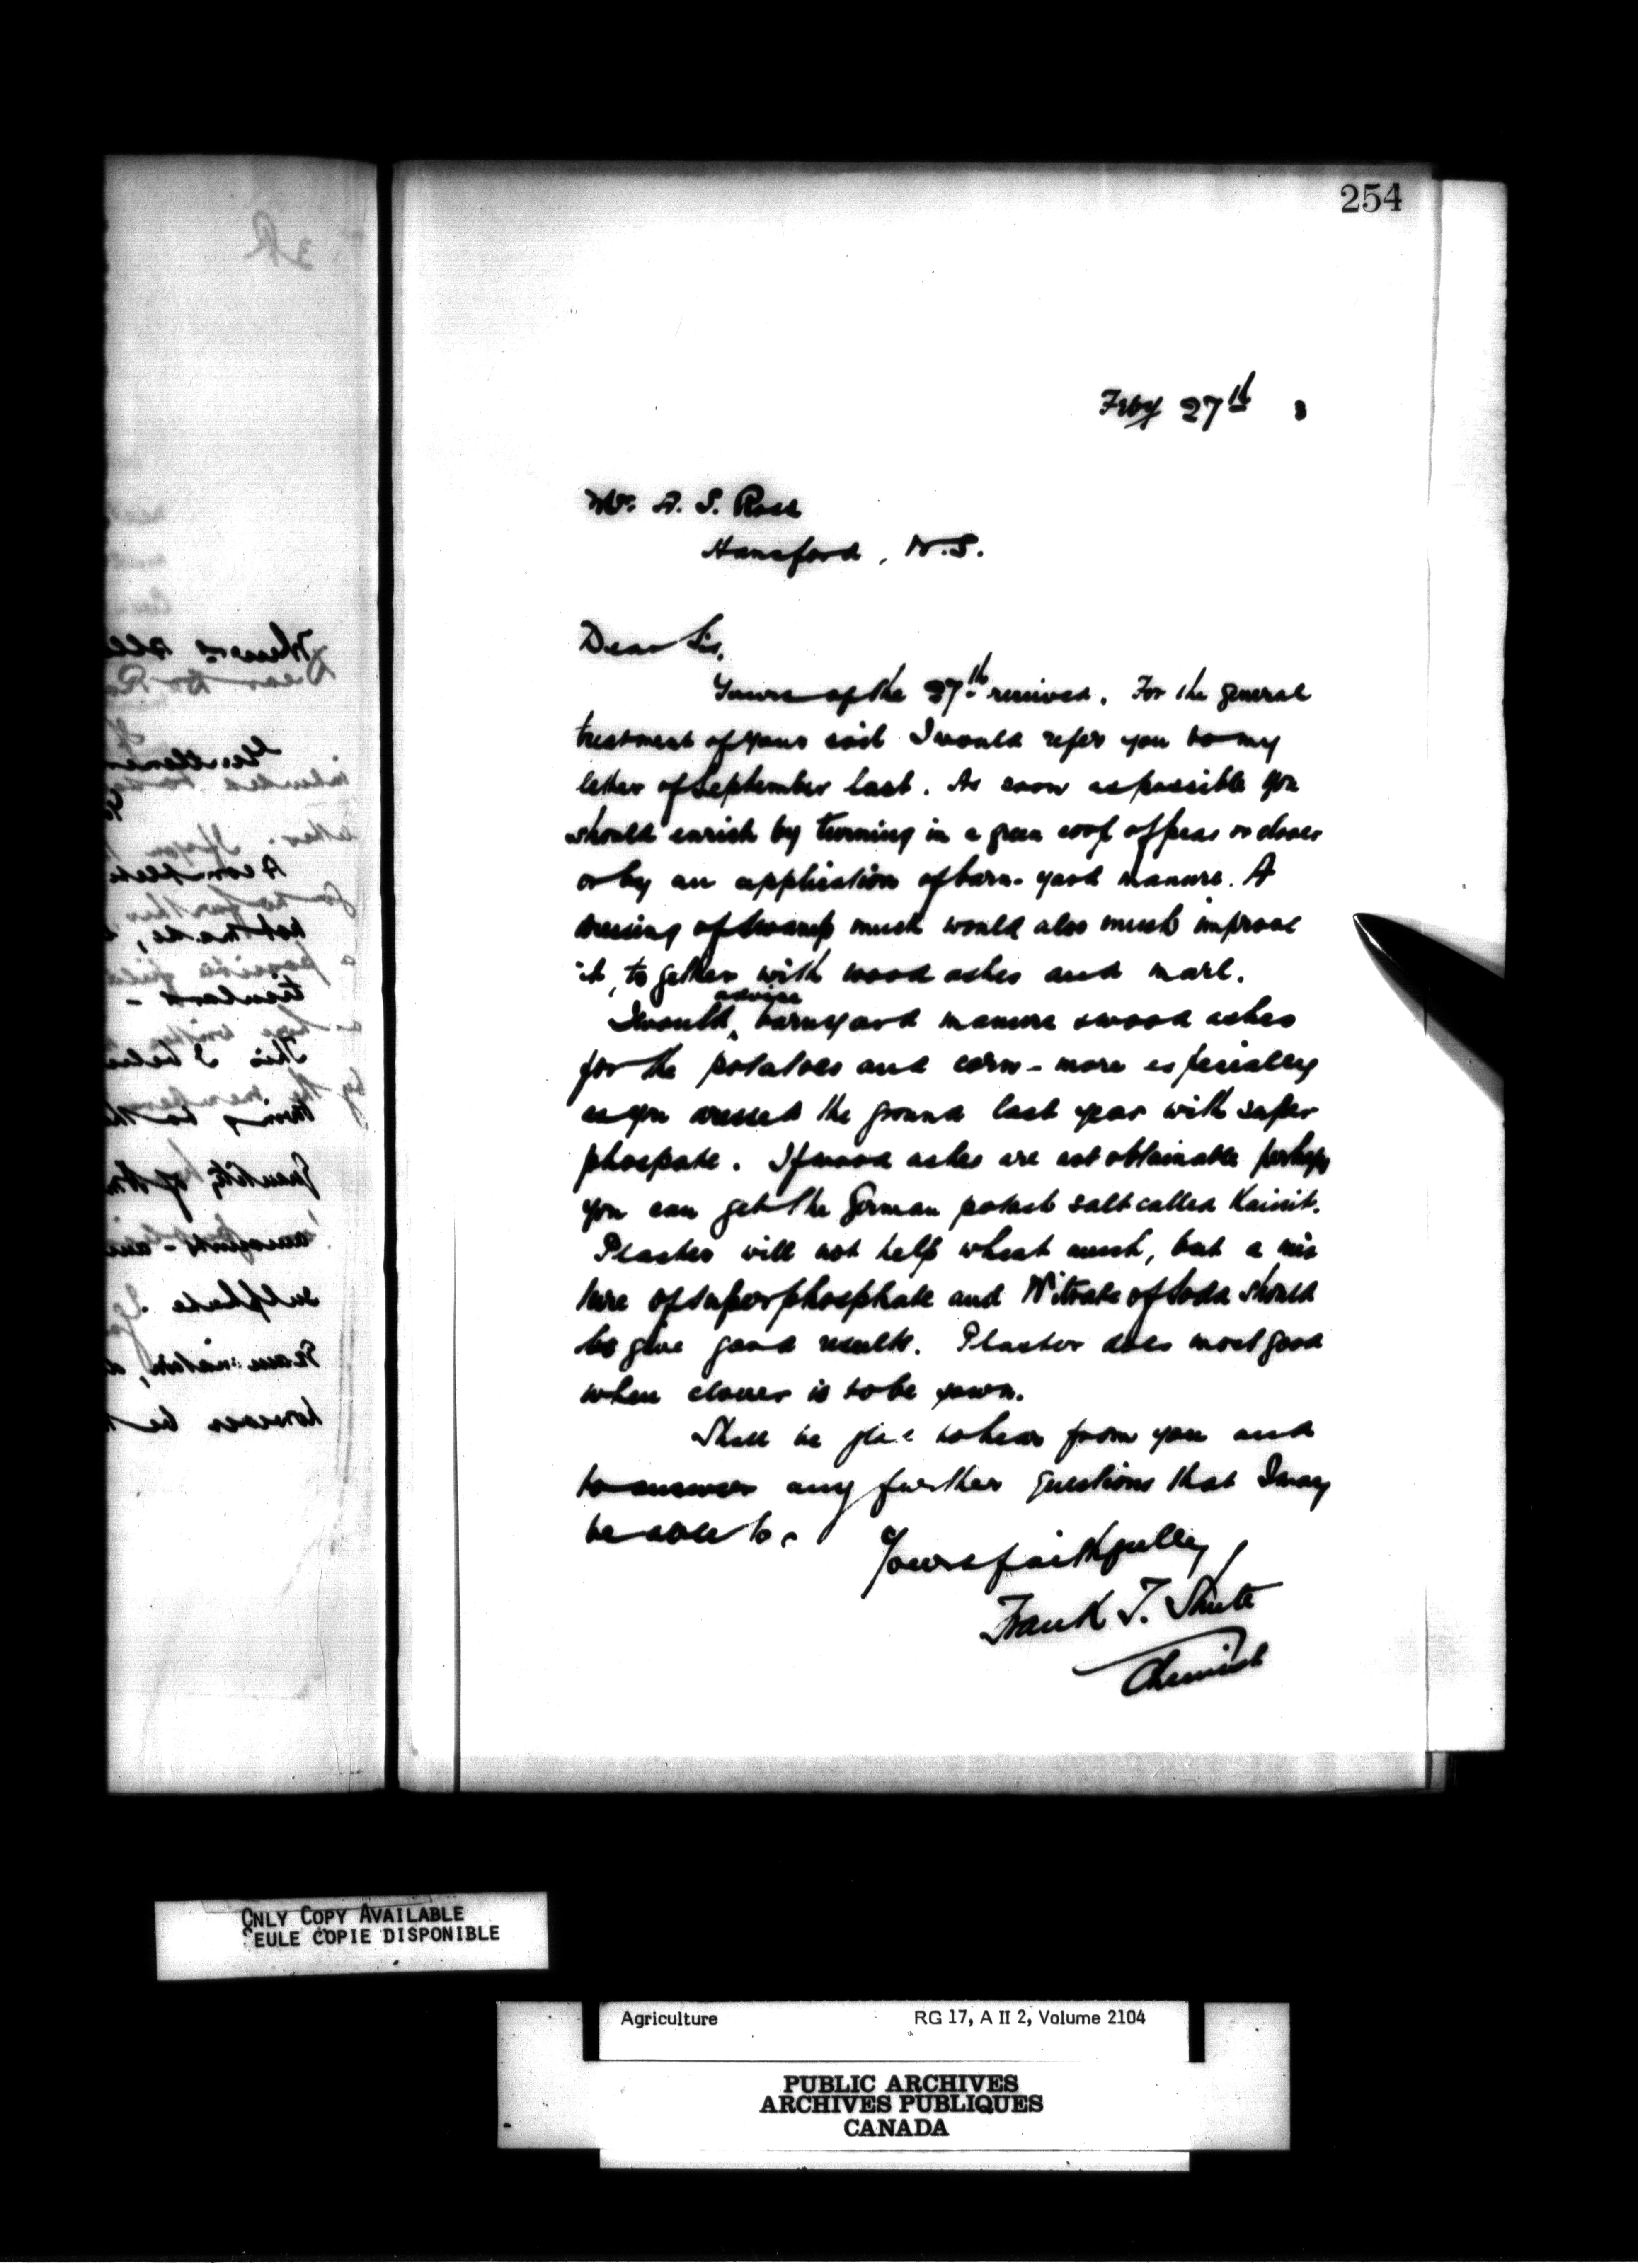 254
Feby 27th 3
Mr. A. S. Ross
Hansford, N.S.
Dear Sir,
Yours of the 27th received. For the general
treatment of your soil I would refer you to my
letter of September last. As soon as possible you
should enrich by turning in a green crop of peas or clover
or by an application of barn-yard manure. A
dressing of swamp muck would also much improve
it, together with wood ashes and marl.
I would advise barnyard manure & wood ashes
for the potatoes and corn - more especially
as you dressed the ground last year with super
phospate. If wood ashes are not obtainable perhaps
you can get the German potash salt called Kainit.
Plaster will not help wheat much, but a mix
ture of superphosphate and Nitrate of Soda should
give good results. Plaster does most good
when clover is to be sown.
Shall be glad to hear from you and
to answer any further questions that I may
be able to.
Yours faithfully,
Frank T. Shutt
Chemist
ONLY COPY AVAILABLE
SEULE COPIE DISPONIBLE
Agriculture RG 17, A II 2, Volume 2104
PUBLIC ARCHIVES
ARCHIVES PUBLIQUES
CANADA